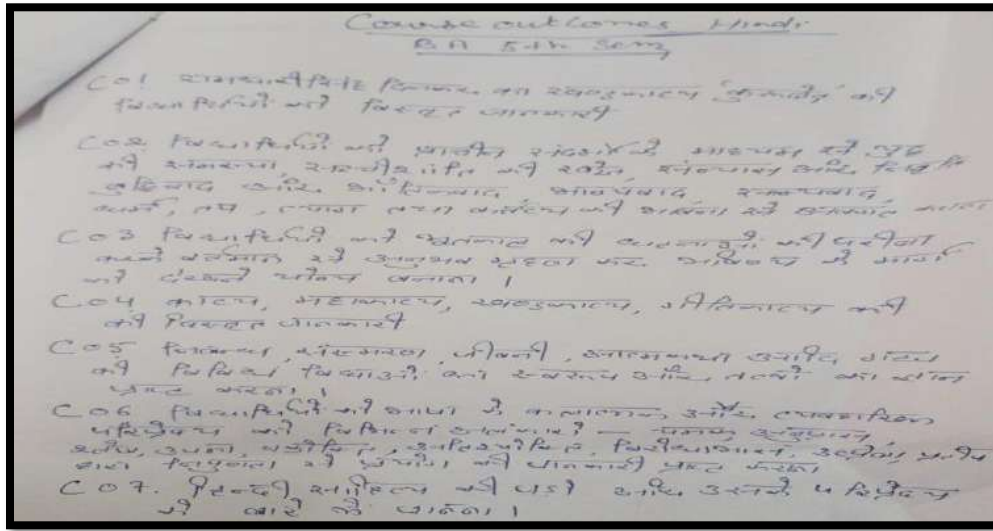 Course outcomes Hindi
BA 5th Sem
CO1 रामधारी सिंह दिनकर का खण्डकाव्य 'कुरुक्षेत्र' की
विद्यार्थियों को विस्तृत जानकारी
CO2 विद्यार्थियों को प्राचीन संदर्भों के माध्यम से युद्ध
की समस्या, शांति की और
बुद्धिवाद और भाग्यवाद
धर्म, तप, त्याग तथा कर्तव्य की भावना से
CO3 विद्यार्थियों को भूतकाल की घटनाओं की
करके वर्तमान से अनुभव ग्रहण कर भविष्य के मार्ग
को देखने योग्य बनाना ।
CO4 काव्य, महाकाव्य, खण्डकाव्य, गीतिकाव्य की
की विस्तृत जानकारी
CO5 निबन्ध, संस्मरण, जीवनी, आत्मकथा आदि गद्य
की विविध विधाओं का स्वरूप और तत्वों का ज्ञान
करना ।
CO6 विद्यार्थियों को भाषा के कलात्मक और व्यवहारिक
परिप्रेक्ष्य को विभिन्न अलंकारों – यमक, अनुप्रास,
श्लेष, उपमा, वक्रोक्ति, अतिश्योक्ति, विरोधाभास, प्रतीप
द्वारा निपुणता से प्रयोग की जानकारी करना
CO7. हिन्दी साहित्य को पढ़ो और उसके परिप्रेक्ष्य
के बारे में जानना ।